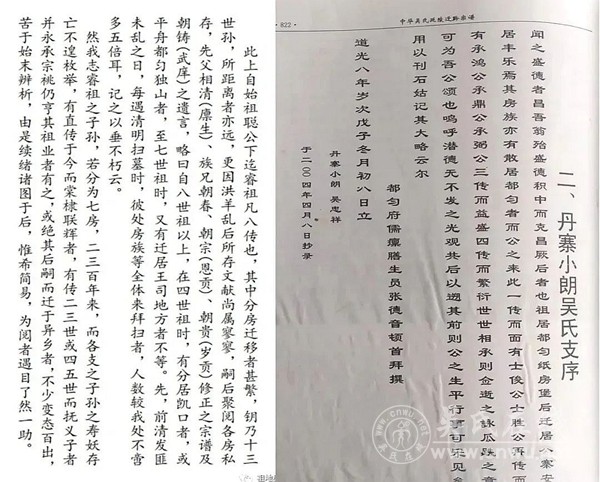 ·822· 中华吴氏延陵迁黔宗谱
二、丹寨小朗吴氏支序
闻之盛德者昌吾翁殆盛德积中而克昌厥后者也祖居都匀纸房堡后迁居八寨安
居丰乐焉其房族亦有散居都匀者而公之来此一传而面有士俊公士胜公再传而
有承鸿公承鼎公承弼公三传而益盛四传而繁衍世世相承则佥逝之詠瓜跌之章
可为吾公颂也呜呼潜德无不发之光观其后以遡其前则公之生平行事可乐见矣
用以刊石姑记其大略云尔
都匀府儒癝膳生员张德音顿首拜撰
道光八年岁次戊子冬月初八日立
丹寨小朗 吴忠祥
于二〇〇四年四月八日抄录
此上自始祖聪公下迄睿祖凡八传也，其中分房迁移者甚繁，钥乃十三
世孙，所距离者亦远，更因洪羊乱后所存文献尚属寥寥，嗣后聚阅各房私
存，先父相清（原生）、族兄朝春、朝宗（恩贡）、朝贵（岁贡）修正之宗谱及
朝铸（武庠）之遗言，略曰自八世祖以上，在四世祖时，有分居凯口者，或
平舟都匀独山者，至七世祖时，又有迁居王司地方者不等。先，前清发匪
未乱之日，每遇清明扫墓时，彼处房族等全体来拜扫者，人数较我处不啻
多五倍耳，记之以垂不朽云。
然我志睿祖之子孙，若分为七房，二三百年来，而各支之子孙之寿妖存
亡不遑枚举，有直传于今而棠棣联辉者，有传二三世或四五世而抚义子者
并永承宗祧仍亨其祖业者有之，或绝其后嗣而迁于异乡者，不少变态百出，
苦于始末辨析，由是续绪图于后，惟希简易，为阅者遇目了然一助。
www.cnwu.net